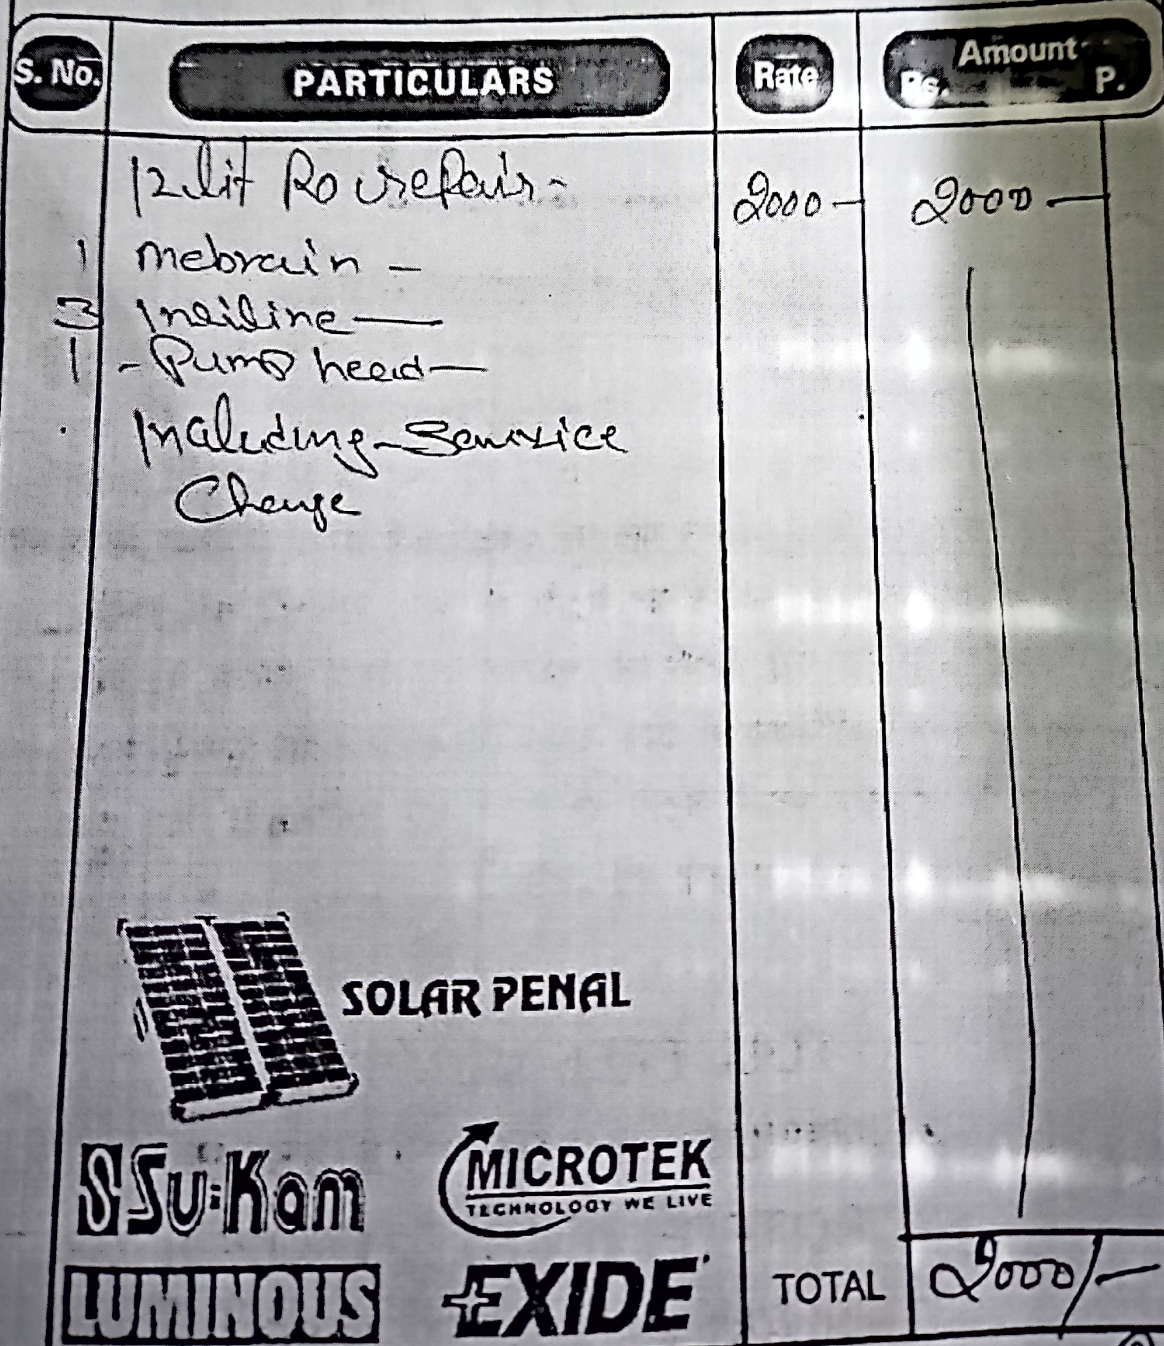 S. No. PARTICULARS Rate Amount Rs. P.
12 lit Ro repair - 2000 - 2000 -
1 mebrain -
3 Insiline -
1 - Pump head -
Including - Service
Charge
SOLAR PENAL
Su-Kam
MICROTEK
TECHNOLOGY WE LIVE
LUMINOUS
EXIDE
TOTAL 2000/-